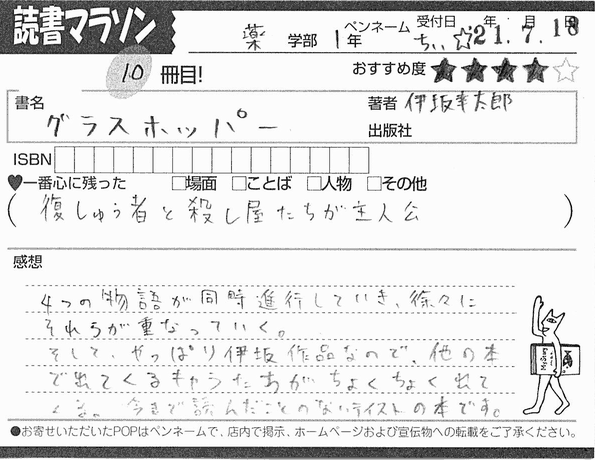 読書マラソン
薬 学部 1年 ペンネーム ちぃ☆ 受付日 21年 7.月 18日
10 冊目! おすすめ度 ★★★★☆
書名 グラスホッパー 著者 伊坂幸太郎
出版社
ISBN
♥一番心に残った □場面 □ことば □人物 □その他
(復しゅう者と殺し屋たちが主人公)
感想
4つの物語が同時進行していき、徐々に
それらが重なっていく。
そして、やっぱり伊坂作品なので、他の本
で出てくるキャラたちがちょくちょく出て
くる。今まで読んだことのないテイストの本です。
●お寄せいただいたPOPはペンネームで、店内で掲示、ホームページおよび宣伝物への転載をご了承ください。